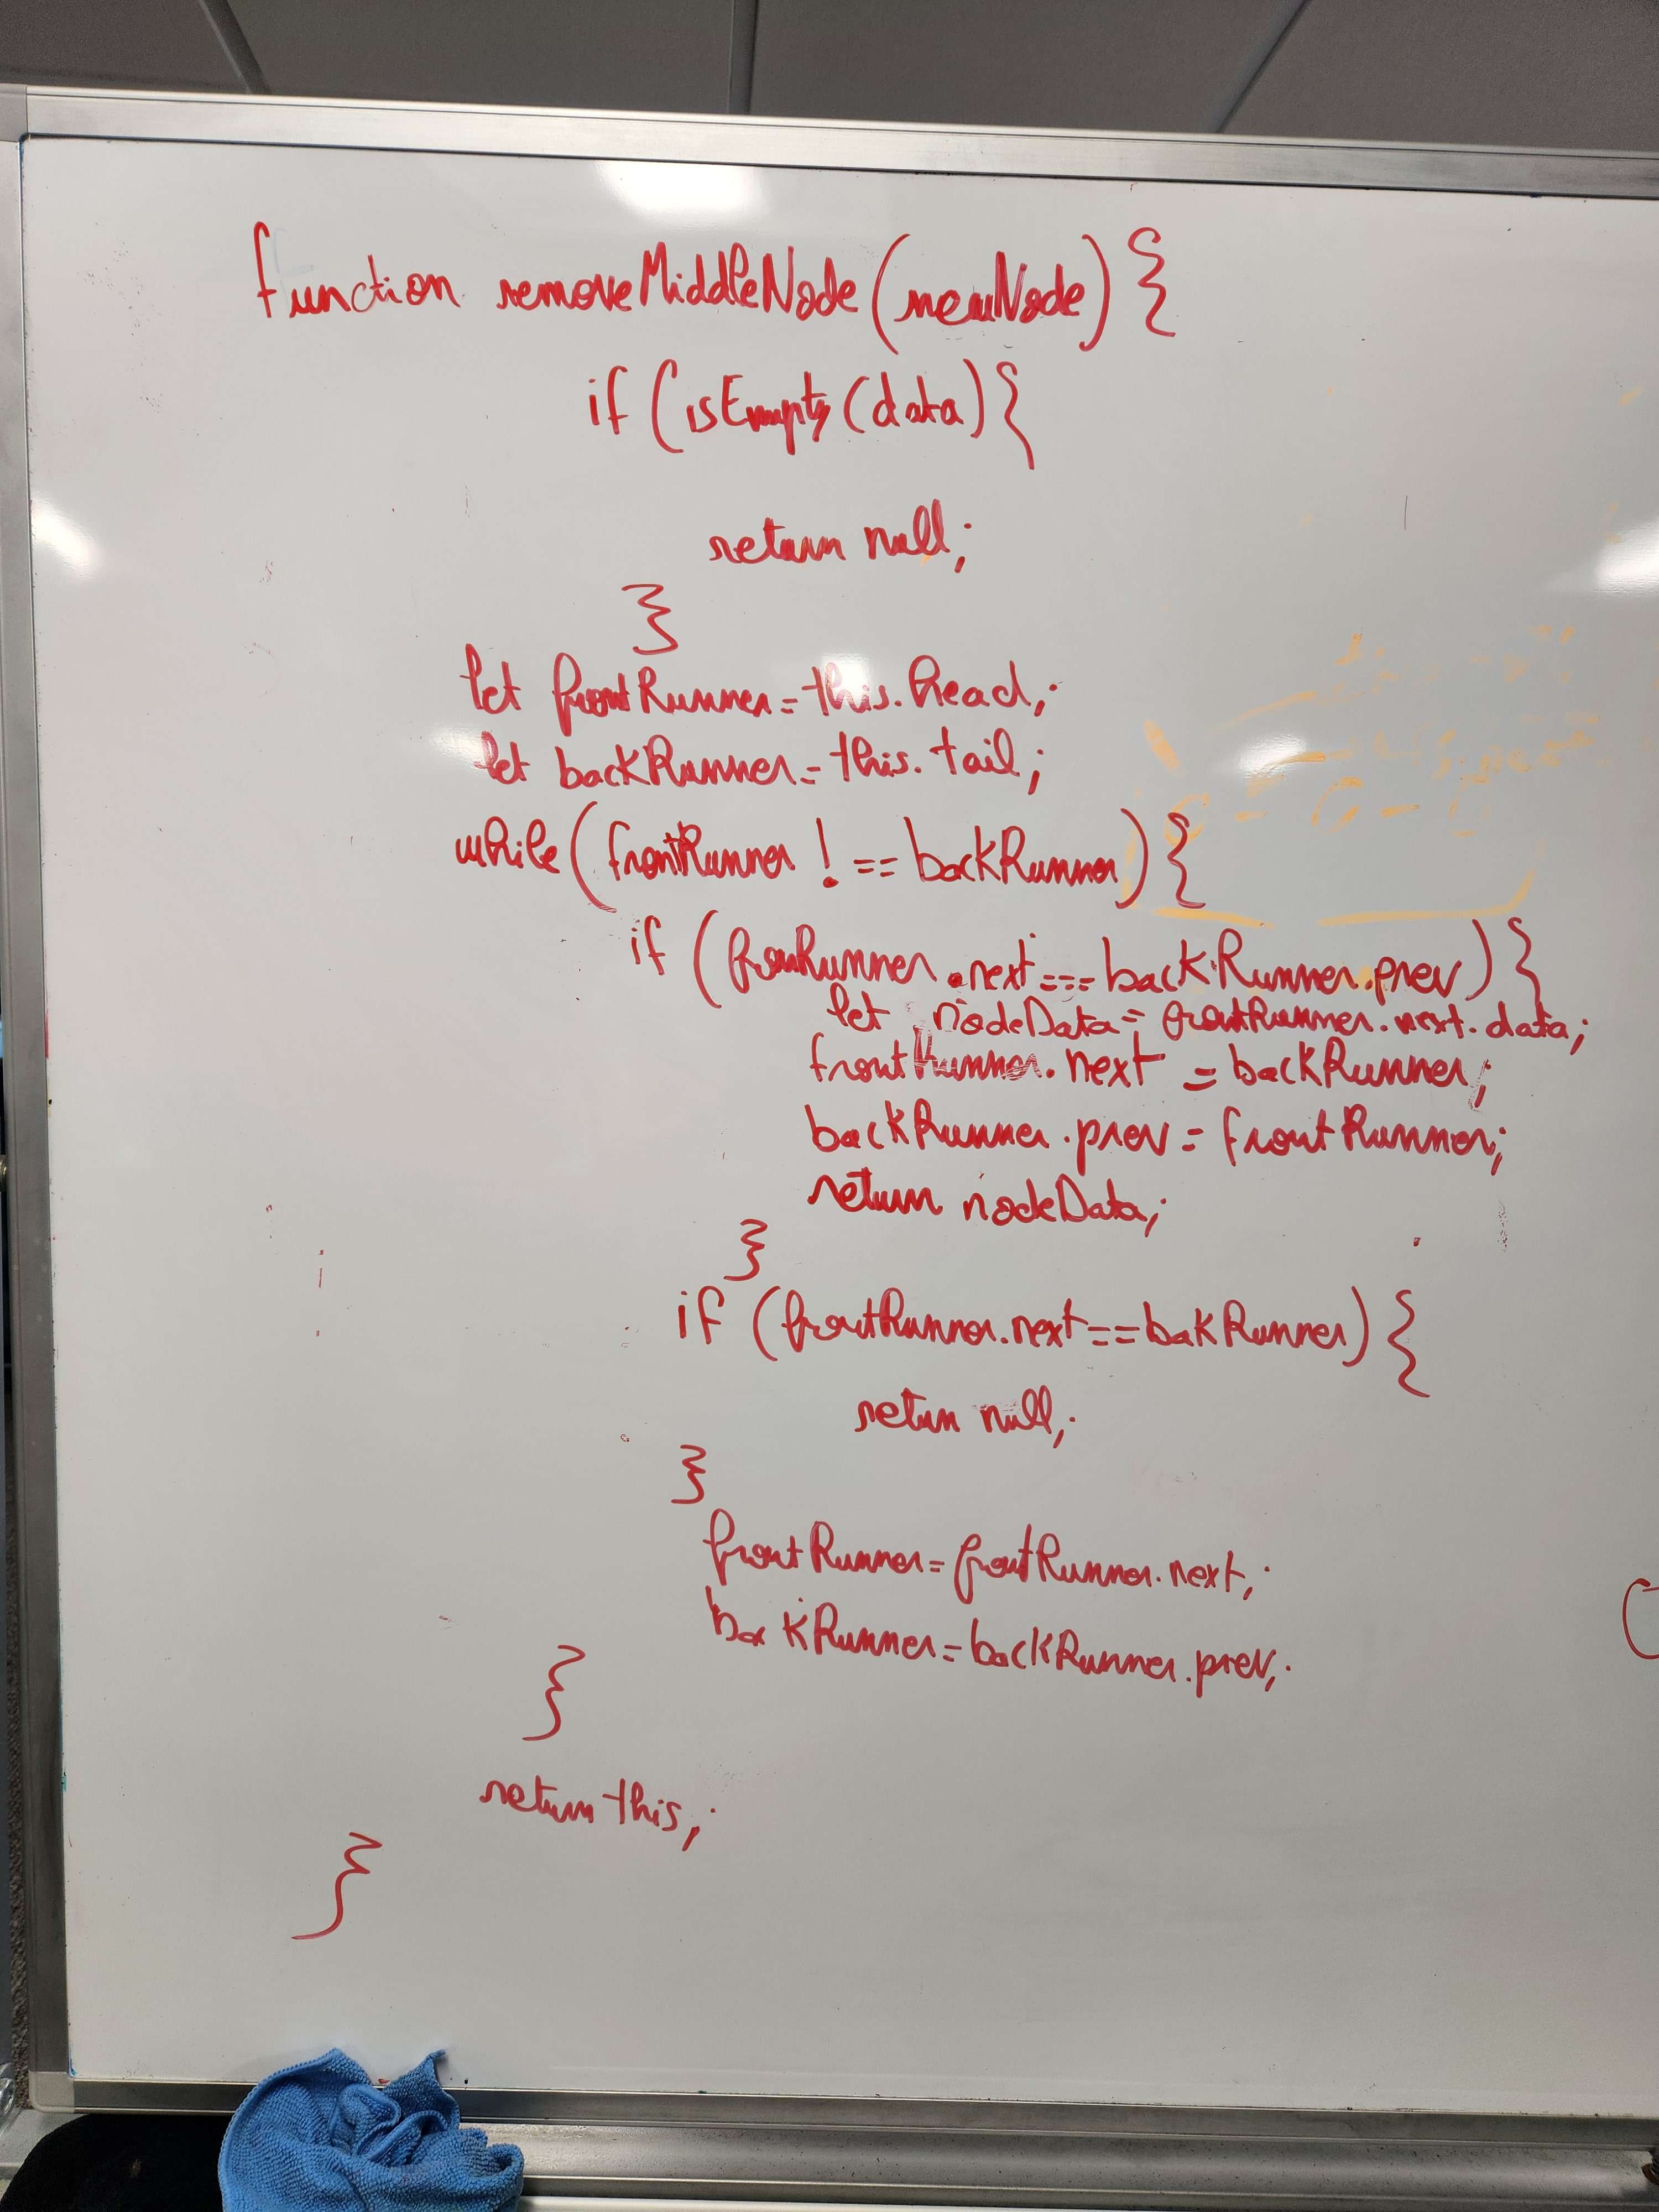 function removeMiddleNode(newNode){
if (isEmpty(data){
return null;
}
let frontRunner=this.head;
let backRunner=this.tail;
while(frontRunner !== backRunner){
if (fronRunner.next===backRunner.prev){
let nodeData=frontRunner.next.data;
frontRunner.next = backRunner;
backRunner.prev = frontRunner;
return nodeData;
}
if (frontRunner.next==bakRunner){
return null;
}
frontRunner=frontRunner.next;
backRunner=backRunner.prev;
}
return this;
}